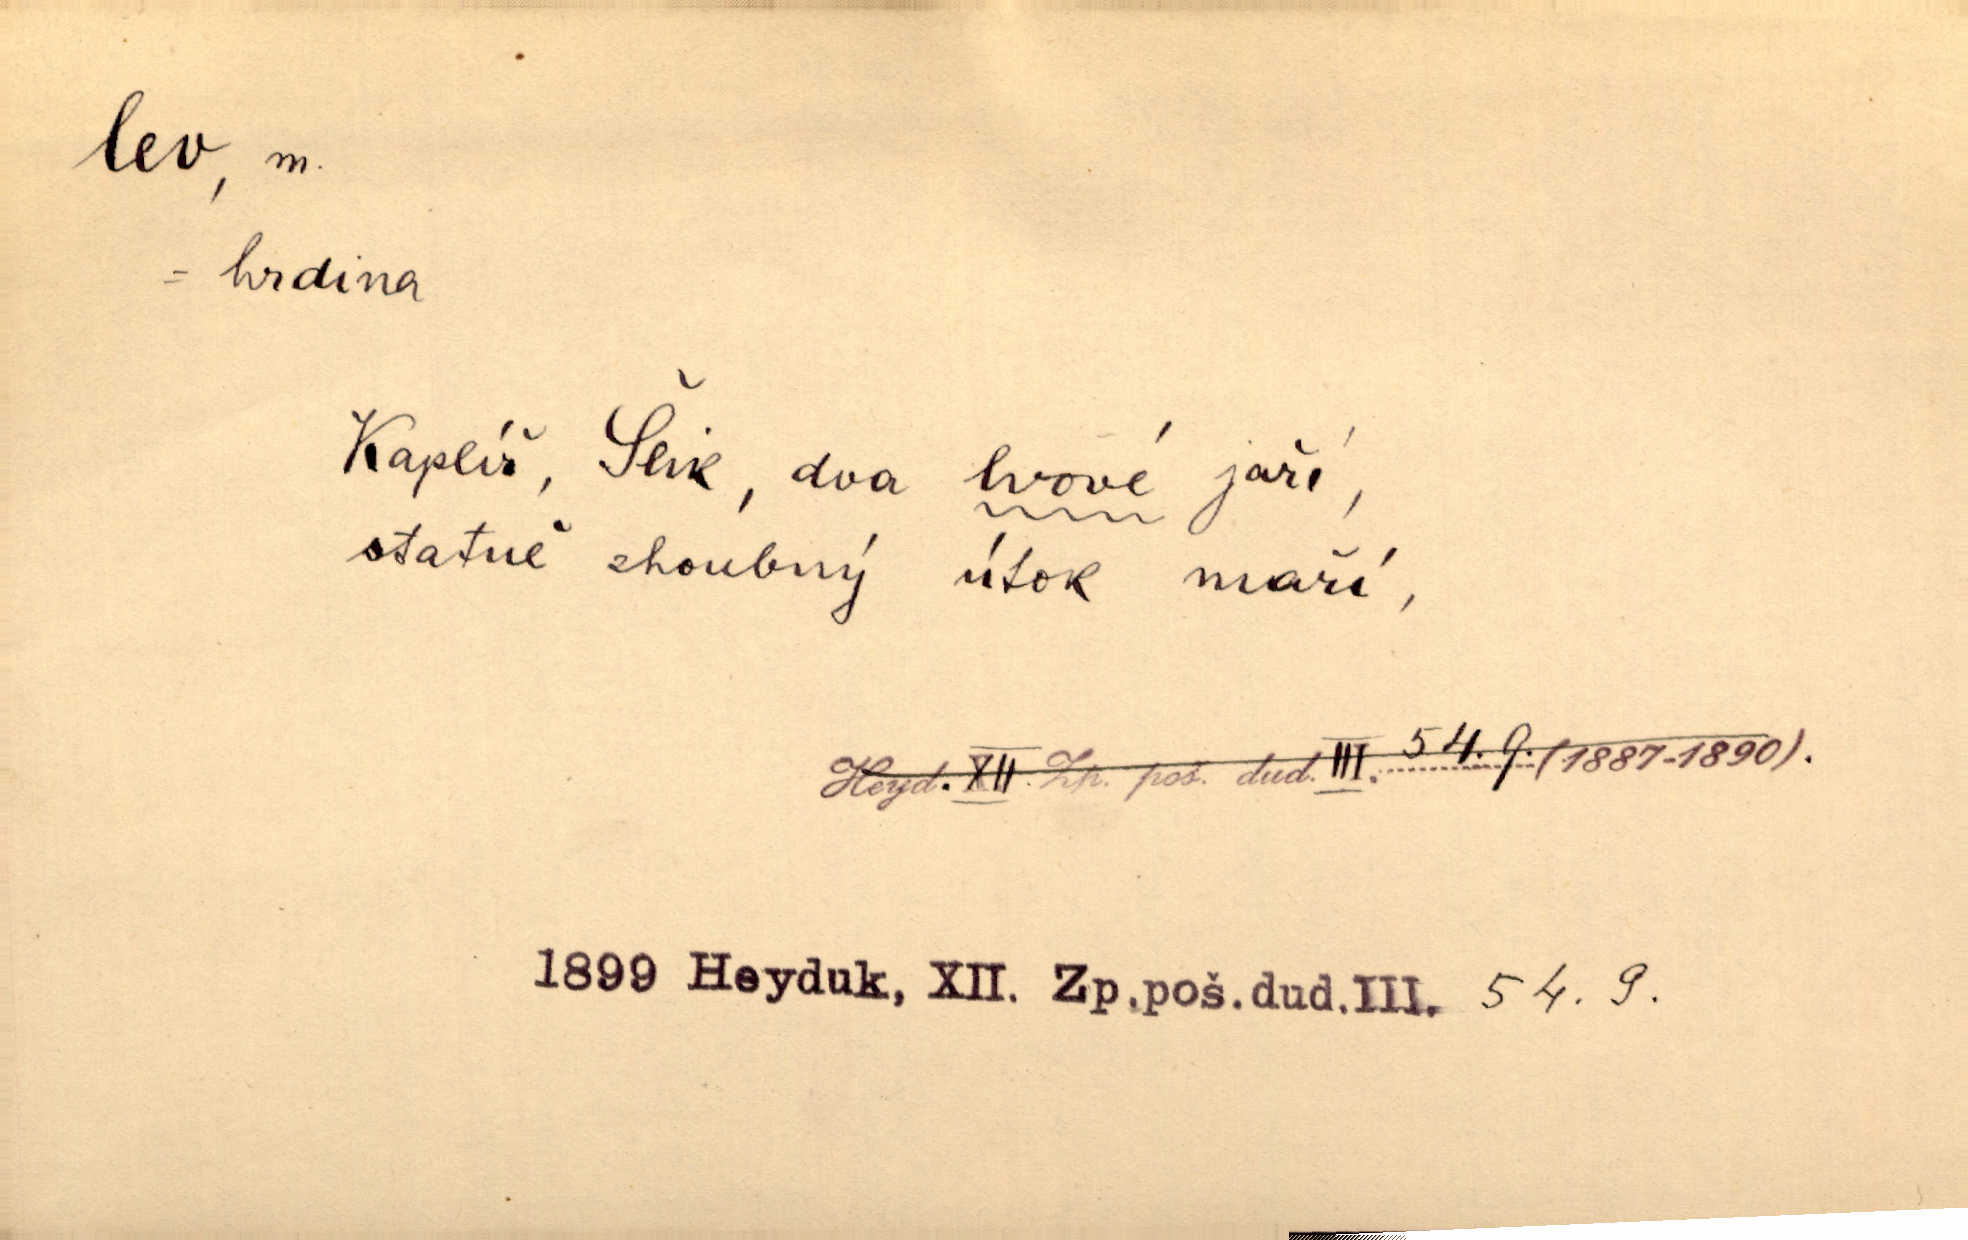 lev, m.
= hrdina
Kaplíř, Šlik, dva lvové jaří,
statně zhoubný útok maří,
Heyd. XII. Zp. poš. dud. III. 54. 9. (1887-1890).
1899 Heyduk, XII. Zp.poš.dud.III. 54. 9.